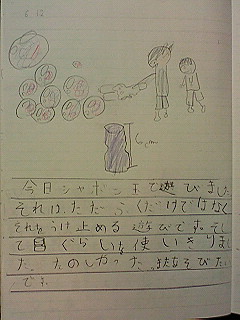 6.12
6cm
今日シャボン玉で遊びました
それは、ただふくだけではなく
それをうけ止める遊びです。そし
てぐらいな使いきりまし
た。たのしかった。またあそびたい
です。